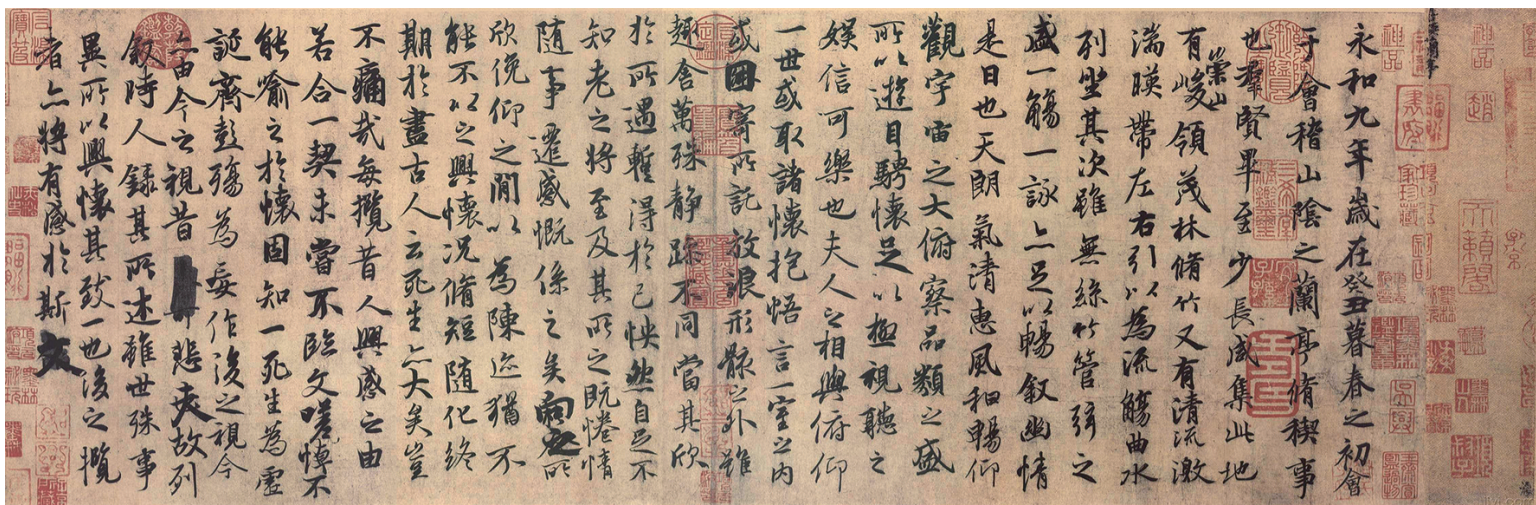 永和九年歲在癸丑暮春之初會
于會稽山陰之蘭亭脩禊事
也羣賢畢至少長咸集此地
有崇山峻領茂林脩竹又有清流激
湍暎帶左右引以為流觴曲水
列坐其次雖無絲竹管弦之
盛一觴一詠亦足以暢叙幽情
是日也天朗氣清惠風和暢仰
觀宇宙之大俯察品類之盛
所以遊目騁懷足以極視聽之
娛信可樂也夫人之相與俯仰
一世或取諸懷抱悟言一室之內
或因寄所託放浪形骸之外雖
趣舍萬殊靜躁不同當其欣
於所遇暫得於己怏然自足不
知老之將至及其所之既惓情
隨事遷感慨係之矣向之所
欣俛仰之閒以為陳迹猶不
能不以之興懷況脩短隨化終
期於盡古人云死生亦大矣豈
不痛哉每攬昔人興感之由
若合一契未嘗不臨文嗟悼不
能喻之於懷固知一死生為虛
誕齊彭殤為妄作後之視今
亦由今之視昔悲夫故列
叙時人錄其所述雖世殊事
異所以興懷其致一也後之攬
者亦將有感於斯文